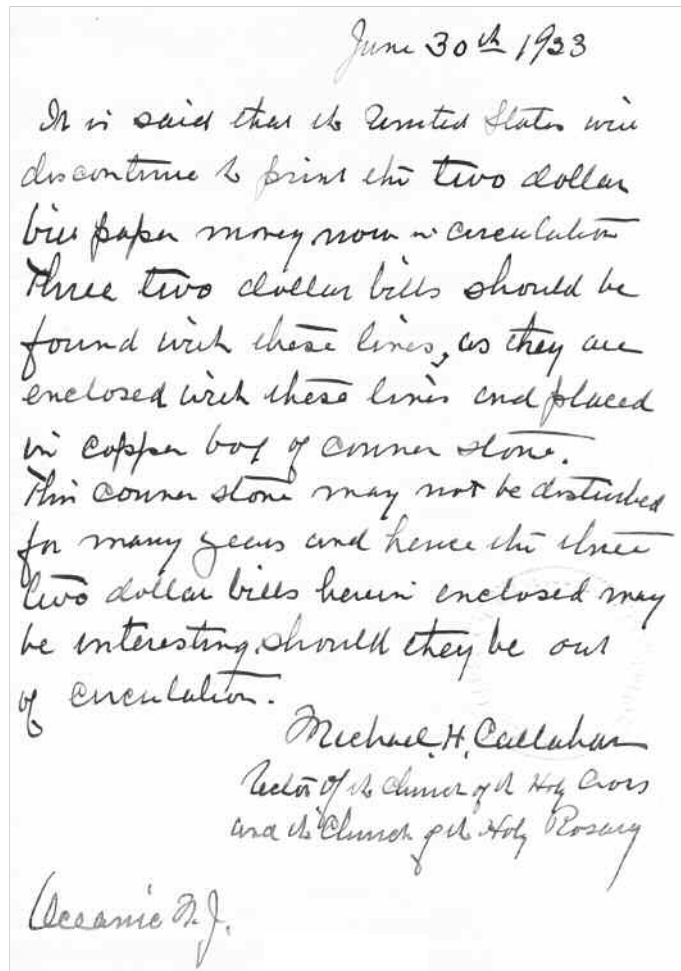 June 30th 1923
It is said that the United States will
discontinue to print the two dollar
bill paper money now in circulation
Three two dollar bills should be
found with these lines, as they are
enclosed with these lines and placed
in copper box of conner stone.
This conner stone may not be disturbed
for many years and hence the three
two dollar bills herein enclosed may
be interesting should they be out
of circulation.
Michael. H. Callahan
Rector of the Church of the Holy Cross
and the Church of the Holy Rosary
Oceanic N.J.